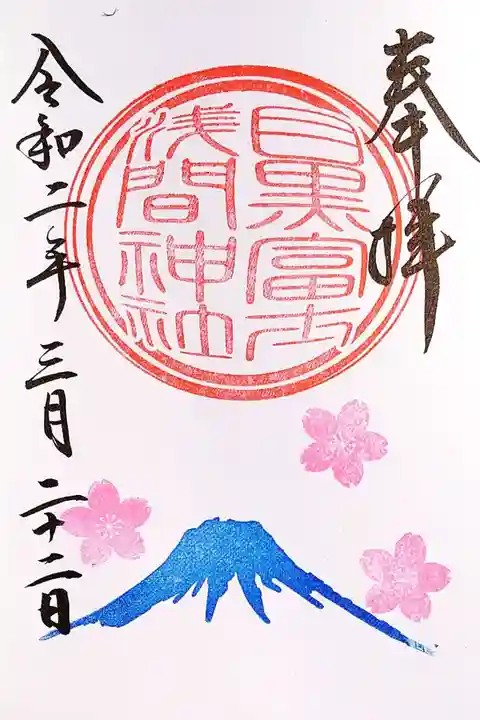 奉拝
目黒富士
浅間神社
令和二年三月二十二日